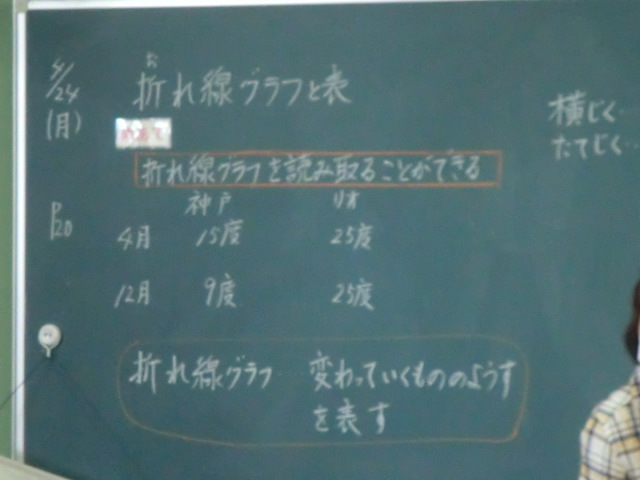 4/24
(月)
お
折れ線グラフと表
めあて
折れ線グラフを読み取ることができる
P20
神戸 リオ
4月 15度 25度
12月 9度 25度
折れ線グラフ 変わっていくもののようす
を表す
横じく…
たてじく…